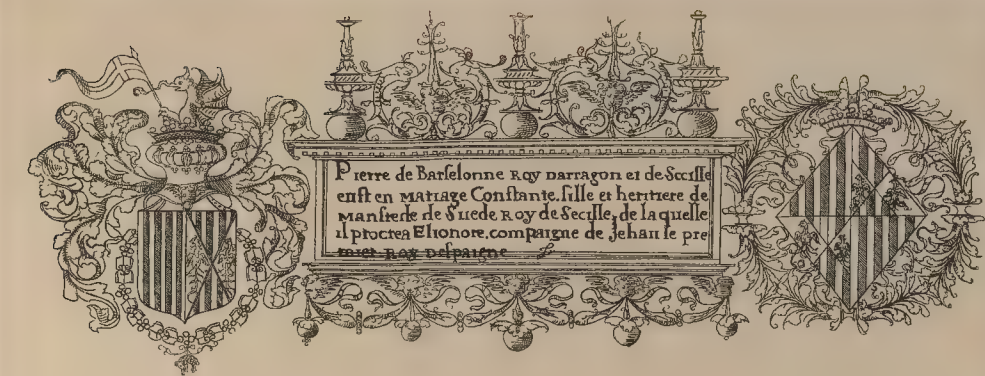 Pierre de Barselonne Roy darragon et de Secille
eust en mariage Constante, fille et heritiere de
manfrede de Suede Roy de Secille, de laquelle
il procrea Elionore, compaigne de Jehan le pre
mier Roy despaigne